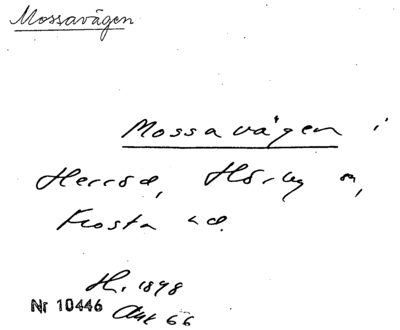 Mossavägen
Mossavägen i
Herröd, Hörby sn,
Frosta hd.
H. 1898
Nr 10446 Akt 66